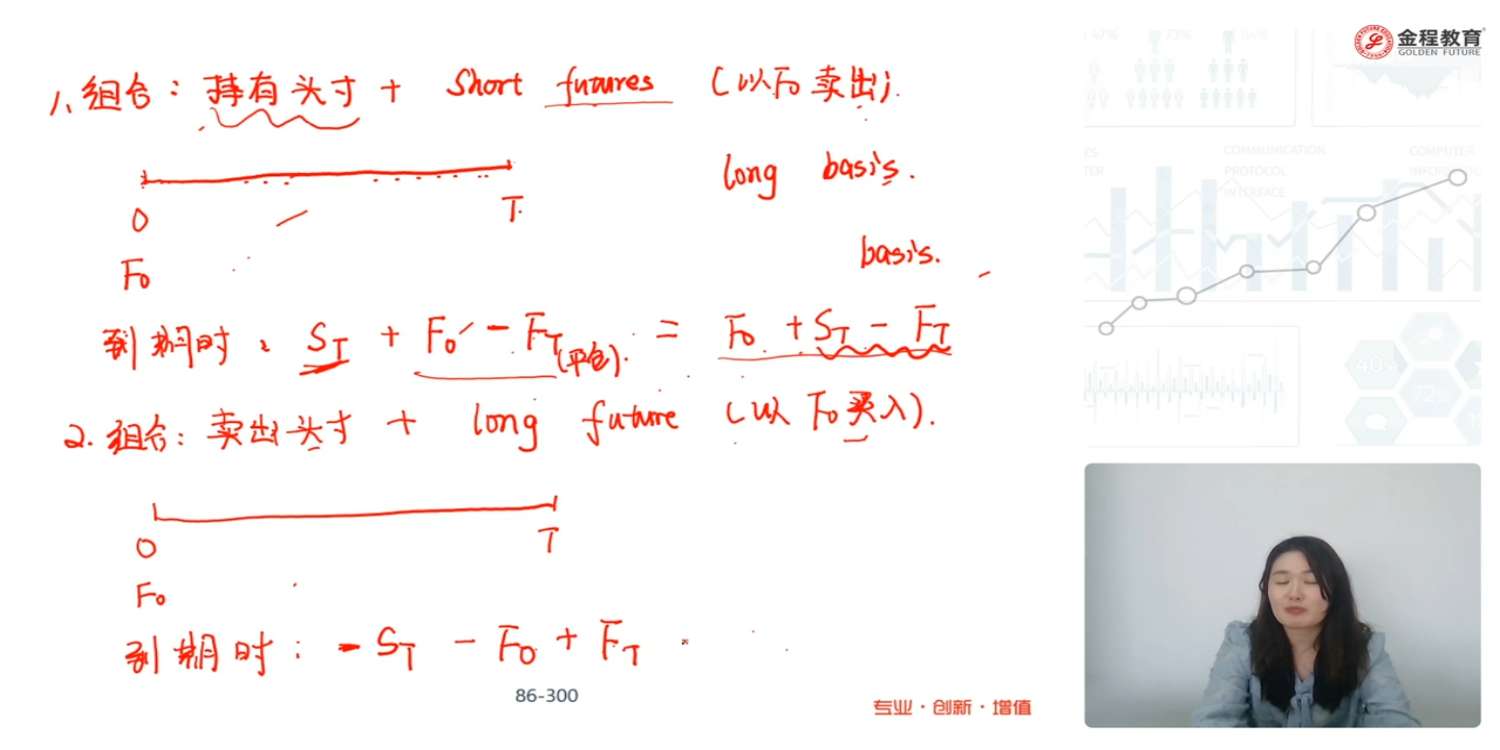 金程教育
GOLDEN FUTURE
1、组合：持有头寸 + Short futures （以F₀卖出）.
long basis.
0 T.
F₀
basis.
到期时： S_T + F₀ - F_T (平仓). = F₀ + S_T - F_T
2. 组合：卖出头寸 + long future （以 F₀买入）.
0 T
F₀
到期时： - S_T - F₀ + F_T
86-300
专业·创新·增值
COMMUNICATION
PROTOCOL
INTERFACE
COMPUTER
40%
72%